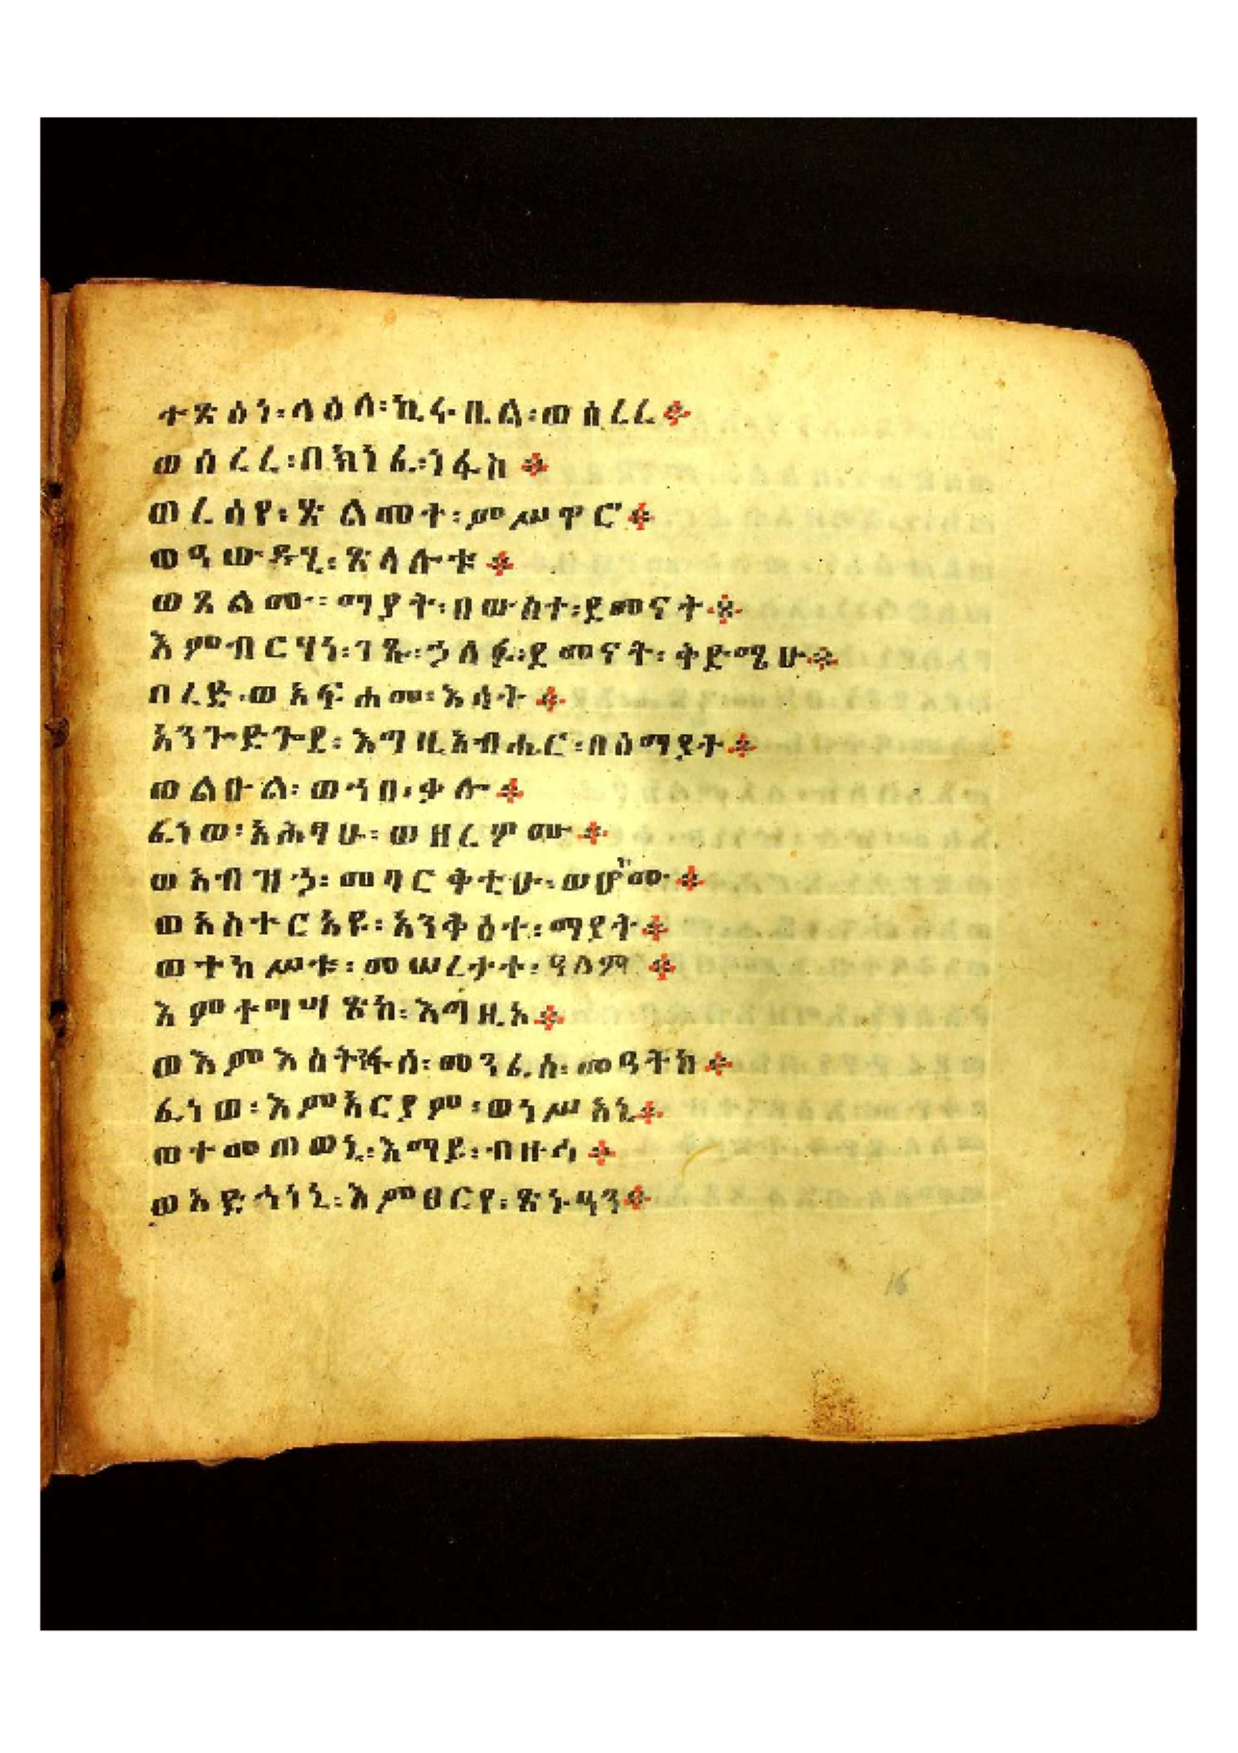 ተጽዕነ፡ላዕለ፡ኪሩቤል፡ወሰረረ።
ወሰረረ፡በክነፈ፡ነፋስ።
ወረሰየ፡ጽልመተ፡ምሥዋሮ።
ወዓውዱኒ፡ጽላሎቱ።
ወጸልሙ፡ማያት፡በውስተ፡ደመናት።
እምብርሃነ፡ገጹ፡ኃለፋ፡ደመናት፡ቅድሜሁ።
በረድ፡ወአፍሐመ፡እሳት።
አንጐድጐደ፡እግዚአብሔር፡በሰማያት።
ወልዑል፡ወሀበ፡ቃሎ።
ፈነወ፡አሕፃሁ፡ወዘረዎሙ።
ወአብዝኃ፡መባርቅቲሁ፡ወሆከሙ።
ወአስተርአዩ፡አንቅዕተ፡ማያት።
ወተከሥቱ፡መሠረታተ፡ዓለም።
እምተግሣጽከ፡እግዚኦ።
ወእምእስትንፋሰ፡መንፈሰ፡መዓትከ።
ፈነወ፡እምአርያም፡ወነሥአኒ።
ወተመጠወኒ፡እማይ፡ብዙኅ።
ወአድኀነኒ፡እምፀርየ፡ጽኑዓን።
16